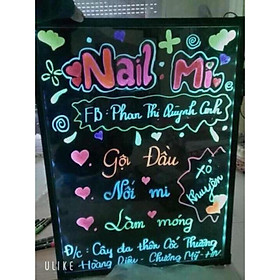 Nail Mi
FB: Phan Thị Quỳnh Anh
Gội Đầu
Nối mi
Làm móng
Xỏ
khuyên
Đ/c: Cây đa thôn Cốc Thượng
Hoàng Diệu - Chương Mỹ - HN
ULIKE